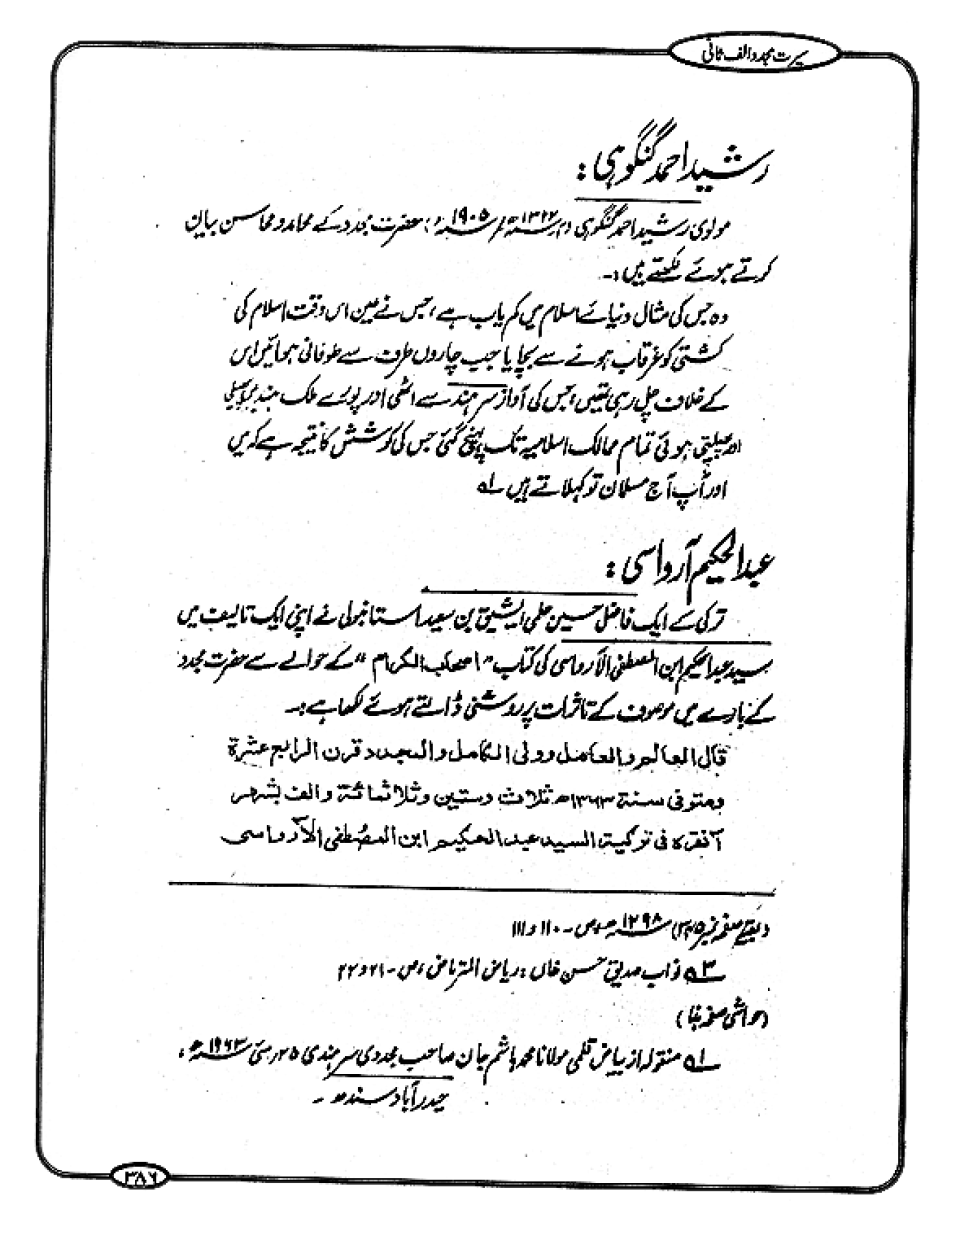 سیرت مجدد الف ثانی
رشید احمد گنگوہی:
مولوی رشید احمد گنگوہی (م ۱۳۲۲ھ / ۱۹۰۵ء) حضرت مجدد کے محامد و محاسن بیان
کرتے ہوئے لکھتے ہیں:۔
وہ جس کی مثال دنیائے اسلام میں کم یاب ہے، جس نے عین اس وقت اسلام کی
کشتی کو غرقاب ہونے سے بچایا جب چاروں طرف سے طوفانی ہوائیں اس
کے خلاف چل رہی تھیں، جس کی آواز سرہند سے اٹھی اور پورے ملک ہند پر پھیلی
اور پھیلتی ہوئی تمام ممالک اسلامیہ تک پہنچ گئی جس کی کوشش کا نتیجہ ہے کہ میں
اور آپ آج مسلمان تو کہلاتے ہیں ؎۱
عبدالحکیم آرواسی:
ترکی کے ایک فاضل حسین حلمی ایشیق بن سعید استانبولی نے اپنی ایک تالیف میں
سید عبدالحکیم ابن المصطفیٰ الآرواسی کی کتاب "اصحاب الکرام" کے حوالے سے حضرت مجدد
کے بارے میں موصوف کے تاثرات پر روشنی ڈالتے ہوئے لکھا ہے:۔
قال العالم والعامل وولی الکامل والمجدد قرن الرابع عشرة
ومتوفی سنة ۱۳۶۳ھ ثلاث وستین وثلاثمائة والف بشهر
آنقره فی ترکیة، السید عبد الحکیم ابن المصطفی الآرواسی
(بقیہ صفحہ نمبر ۳۸۵) ۱۲۹۸ھ، ص۔ ۱۱۰ و ۱۱۱
؎۳ نواب صدیق حسن خاں : ریاض المرتاض، ص۔ ۲۱ و ۲۲
(حواشی صفحہ ہٰذا)
؎۱ منقولہ از بیاض قلمی مولانا محمد ہاشم جان صاحب مجددی سرہندی ۲۵ مئی ۱۹۶۳ء،
حیدرآباد سندھ۔
۳۸۶